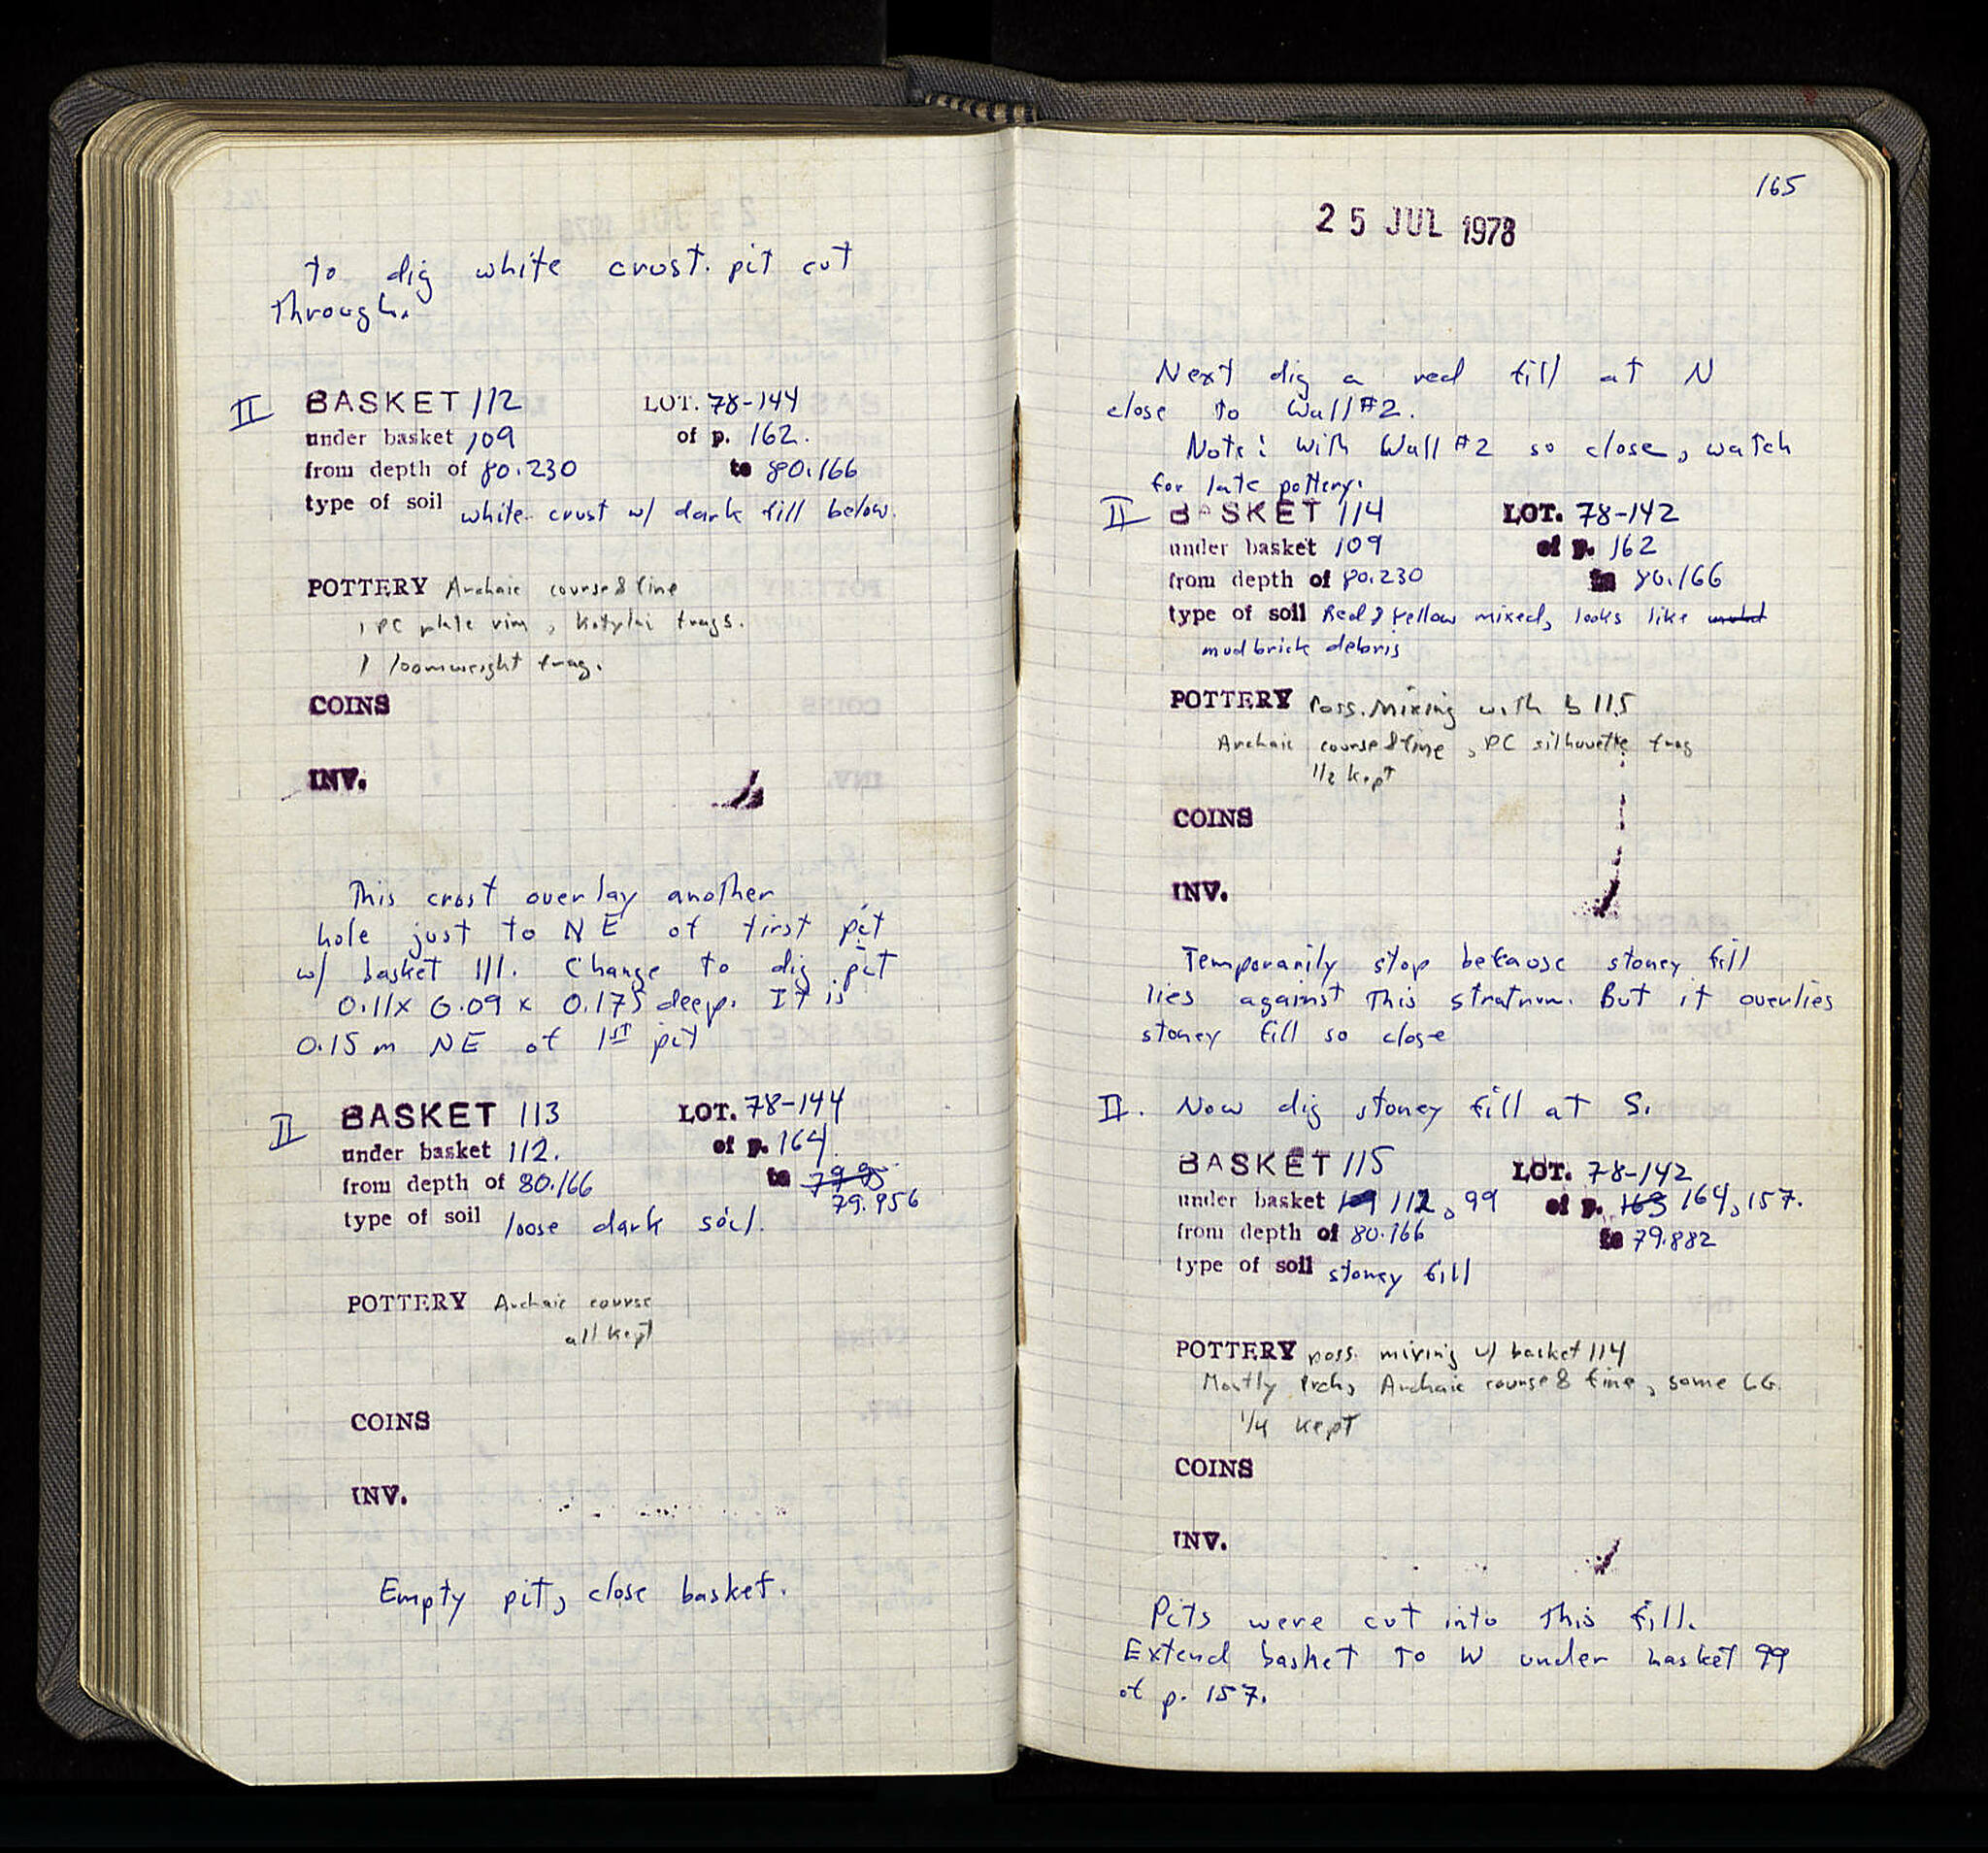 to dig white crust. pit cut
through.
II BASKET 112 LOT. 78-144
under basket 109 of p. 162.
from depth of 80.230 to 80.166
type of soil white crust w/ dark fill below.
POTTERY Archaic course & fine
1 PC plate rim, Kotylai frags.
1 loomweight frag.
COINS
INV.
This crust overlay another
hole just to NE of first pit
w/ basket 111. Change to dig pit
0.11 x 0.09 x 0.175 deep. It is
0.15 m NE of 1st pit
II BASKET 113 LOT. 78-144
under basket 112. of p. 164.
from depth of 80.166 to 79.95
79.956
type of soil loose dark soil.
POTTERY Archaic course
all kept
COINS
INV.
Empty pit, close basket.
165
25 JUL 1978
Next dig a red fill at N
close to Wall #2.
Note: With Wall #2 so close, watch
for late pottery.
II BASKET 114 LOT. 78-142
under basket 109 of p. 162
from depth of 80.230 to 80.166
type of soil Red & Yellow mixed, looks like
mudbrick debris
POTTERY Poss. Mixing with b 115
Archaic course & fine, PC silhouette frag
1/2 kept
COINS
INV.
Temporarily stop because stoney fill
lies against this stratum. But it overlies
stoney fill so close
II. Now dig stoney fill at S.
BASKET 115 LOT. 78-142
under basket 109 112, 99 of p. 163 164, 157.
from depth of 80.166 to 79.882
type of soil stoney fill
POTTERY poss. mixing w/ basket 114
Mostly Arch, Archaic course & fine, some LG.
1/4 kept
COINS
INV.
Pits were cut into this fill.
Extend basket to W under basket 99
of p. 157.